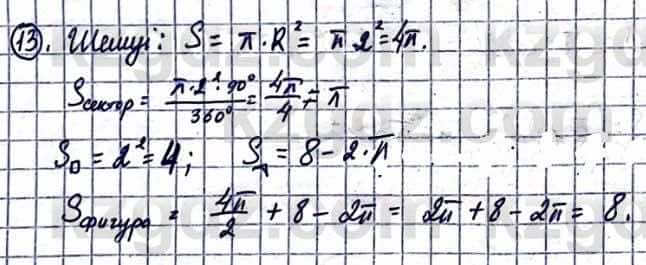 13. Шешуі: S = π · R² = π 2² = 4π.
Sсектор = π·2²·90° / 360° = 4π / 4 = π
S□ = 2² = 4; S = 8 − 2·π
Sфигура = 4π / 2 + 8 − 2π = 2π + 8 − 2π = 8.